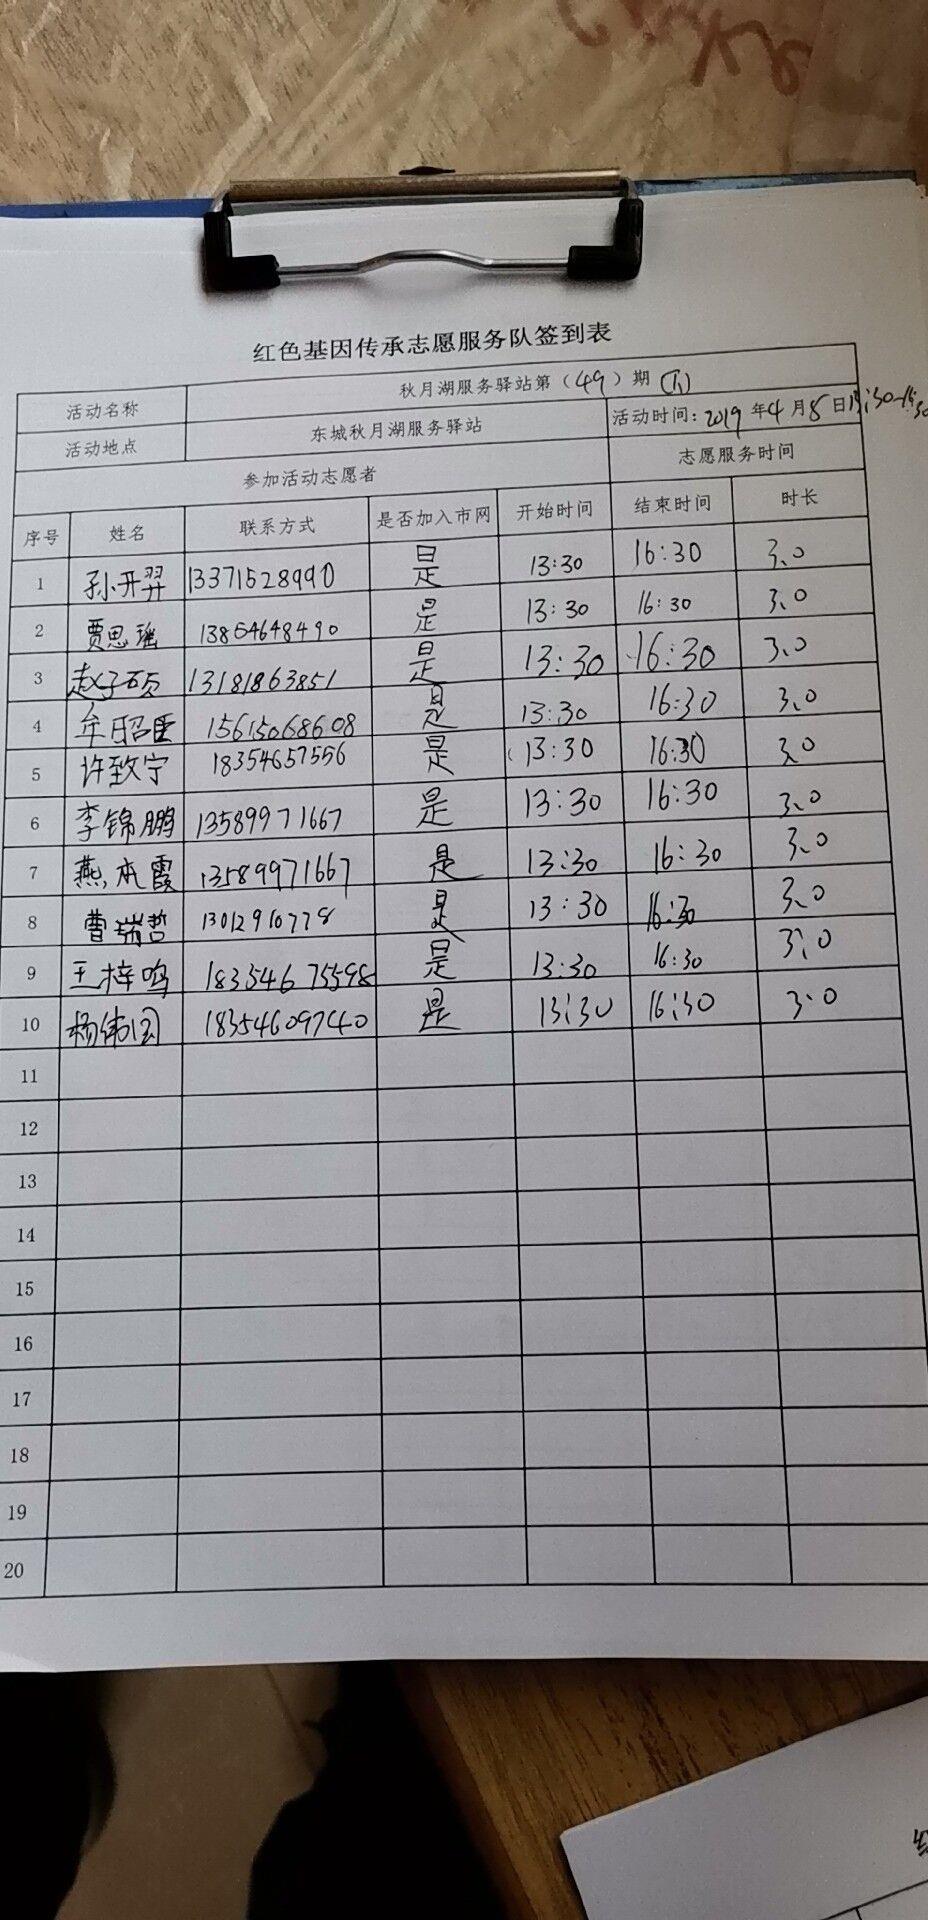 红色基因传承志愿服务队签到表
活动名称 秋月湖服务驿站第（49）期 (下)
活动地点 东城秋月湖服务驿站 活动时间：2019年4月8日13:30-16:30
参加活动志愿者 志愿服务时间
序号 姓名 联系方式 是否加入市网 开始时间 结束时间 时长
1 孙开羿 13371528990 是 13:30 16:30 3.0
2 贾思瑶 13854648490 是 13:30 16:30 3.0
3 赵子硕 13181863851 是 13:30 16:30 3.0
4 牟昭臣 15615068608 是 13:30 16:30 3.0
5 许致宁 18354657556 是 13:30 16:30 3.0
6 李锦鹏 13589971667 是 13:30 16:30 3.0
7 燕本霞 13589971667 是 13:30 16:30 3.0
8 曹瑞哲 13012910778 是 13:30 16:30 3.0
9 王梓鸣 18354675598 是 13:30 16:30 3.0
10 杨伟国 183546097440 是 13:30 16:30 3.0
11
12
13
14
15
16
17
18
19
20